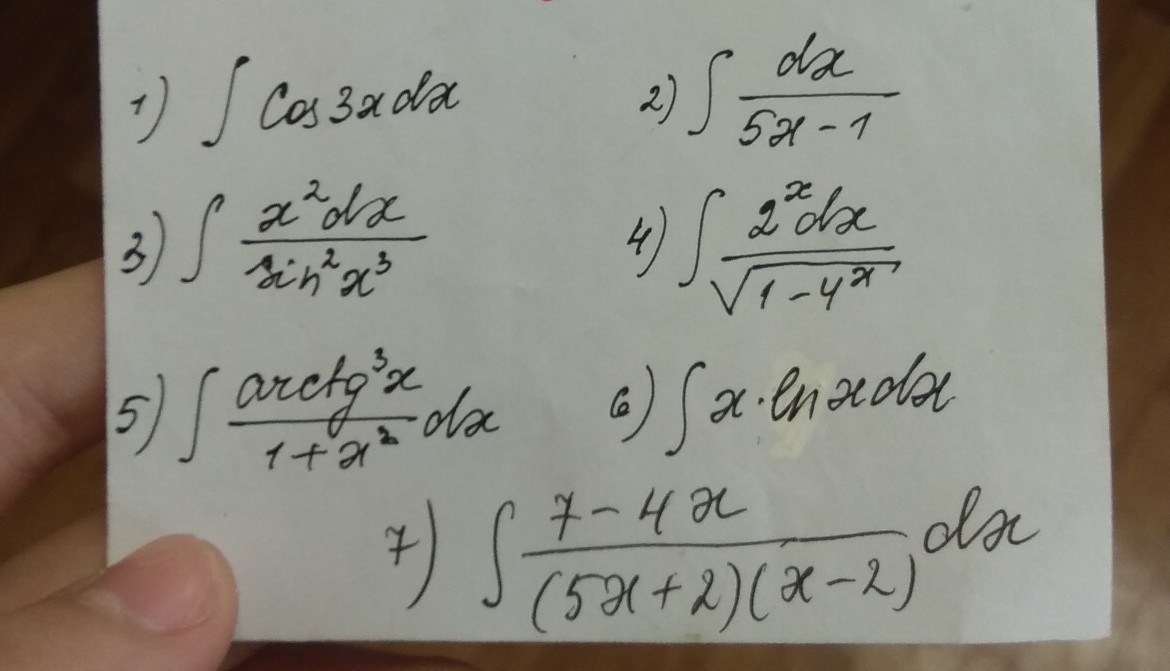 1) ∫ cos 3x dx 2) ∫ dx / (5x - 1)
3) ∫ x² dx / sin² x³ 4) ∫ 2ˣ dx / √(1 - 4ˣ)
5) ∫ arctg³x / (1 + x²) dx 6) ∫ x · ln x dx
7) ∫ (7 - 4x) / ((5x + 2)(x - 2)) dx